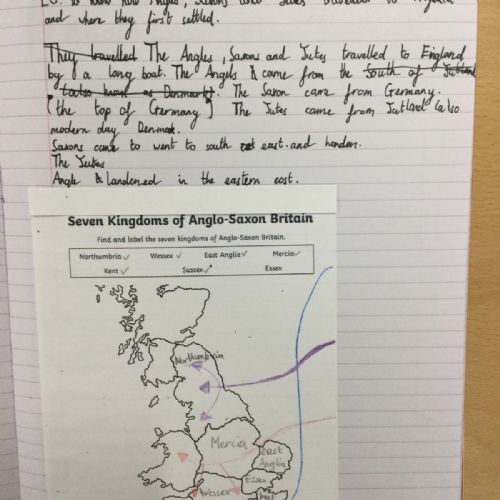 and where they first settled.
They travelled The Angles, Saxons and Jutes travelled to England
by a long boat. The Angels & came from the South of Jutland
(also know as Denmark). The Saxon came from Germany.
(the top of Germany) The Jutes came from Jutland (also
modern day Denmark.
Saxons came to went to south east and London.
The Jutes
Angle & landened in the eastern cost.
Seven Kingdoms of Anglo-Saxon Britain
Find and label the seven kingdoms of Anglo-Saxon Britain.
Northumbria ✓ Wessex ✓ East Anglia ✓ Mercia ✓
Kent ✓ Sussex ✓ Essex
Northumbria
Mercia
East
Anglia
Essex
Wessex